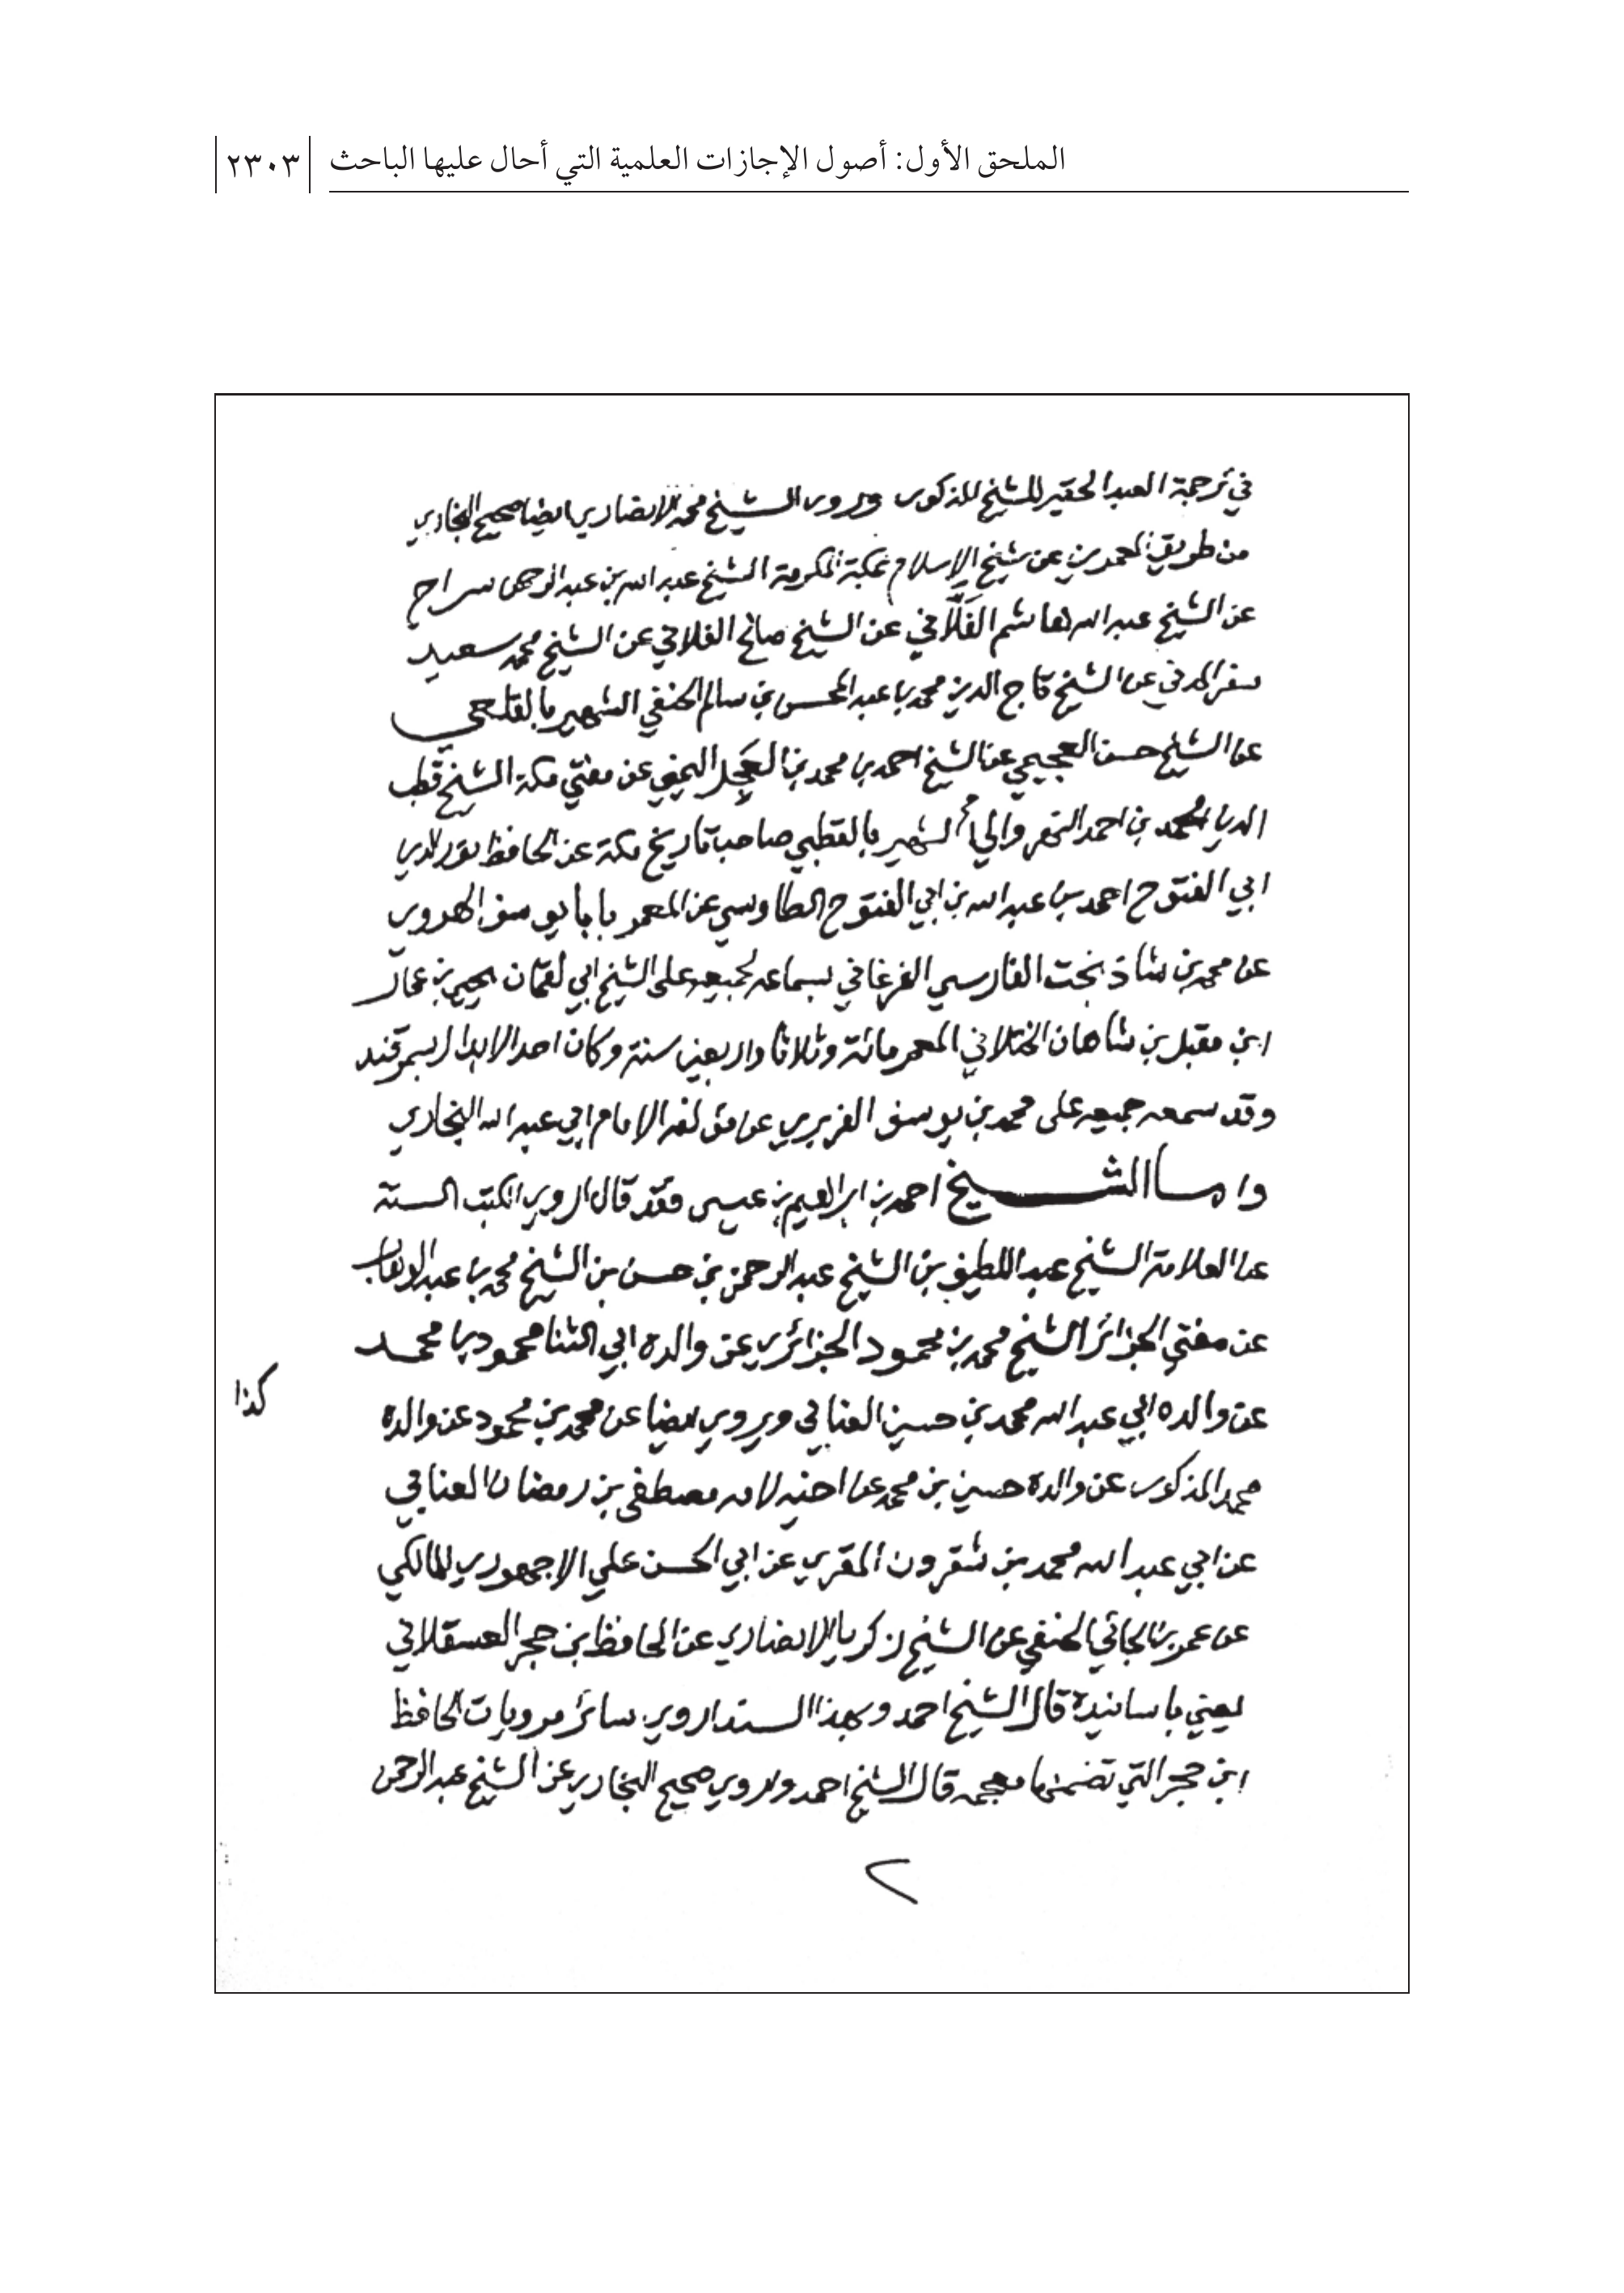 الملحق الأول: أصول الإجازات العلمية التي أحال عليها الباحث
٢٣٠٣
في ترجمة العبد الحقير للشيخ المذكور ويروي الشيخ محمد الانصاري ايضا صحيح البخاري
من طريق المعمرين عن شيخ الإسلام بمكة المكرمة الشيخ عبد الله بن عبد الرحمن سراج
عن الشيخ عبد الله هاشم الفلَّاني عن الشيخ صالح الفلاني عن الشيخ محمد سعيد
سفر المدني عن الشيخ تاج الدين محمد بن عبد المحسن بن سالم الحنفي الشهير بالقلـعي
عن الشيخ حسن العجيمي عن الشيخ احمد بن محمد بن العجل اليمني عن مفتي مكة الشيخ قطب
الدين محمد بن احمد النهروالي الشهير بالقطبي صاحب تاريخ مكة عن الحافظ نور الدين
ابي الفتوح احمد بن عبد الله بن ابي الفتوح الطاوسي عن المعمر بابا يوسف الهروي
عن محمد بن شاذ بخت الفارسي الفرغاني بسماعه لجميعه على الشيخ ابي لقمان يحيى بن عمار
ابن مقبل بن شاهان الختلاني المعمر مائة وثلاثا واربعين سنة وكان احد الابدال بسمرقند
وقد سمعه جميعه على محمد بن يوسف الفربري عن مؤلفه الامام ابي عبد الله البخاري
واما الشيخ احمد بن ابراهيم بن عيسى فقد قال اروي الكتب الستة
عن العلامة الشيخ عبد اللطيف بن الشيخ عبد الرحمن بن حسن بن الشيخ محمد بن عبد الوهاب
عن مفتي الجزائر الشيخ محمد بن محمود الجزائري عن والده ابي الثنا محمود بن محمد
كذا
عن والده ابي عبد الله محمد بن حسين العنابي ويروي ايضا عن محمد بن محمود عن والده
محمد المذكور عن والده حسين بن محمد عن اخيه لامه مصطفى بن رمضان العنابي
عن ابي عبد الله محمد بن شقرون المقري عن ابي الحسن علي الاجهوري المالكي
عن عمر بن الجائي الحنفي عن الشيخ زكريا الانصاري عن الحافظ بن حجر العسقلاني
يعني باسانيده قال الشيخ احمد وبهذا السند اروي سائر مرويات الحافظ
ابن حجر التي تضمنها معجمه قال الشيخ احمد واروي صحيح البخاري عن الشيخ عبد الرحمن